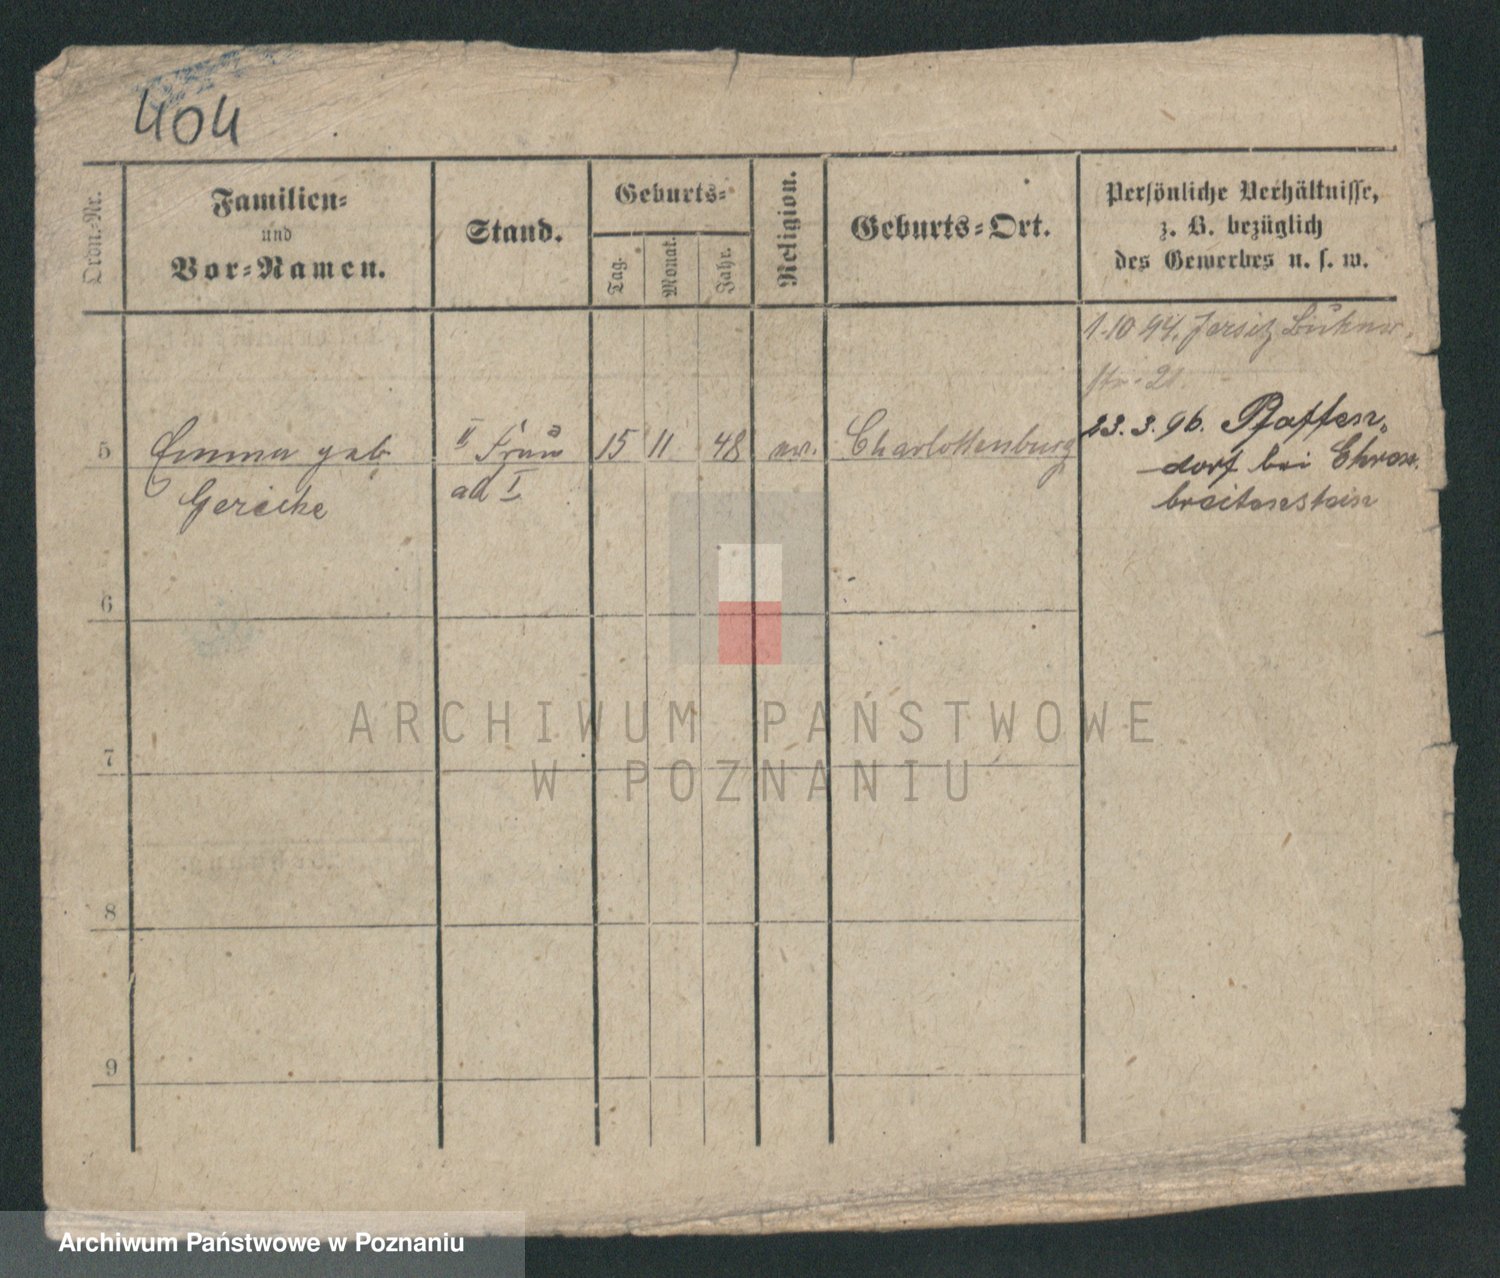 404
Ordn.-Nr.
Familien-
und
Vor-Namen.
Stand.
Geburts-
Tag.
Monat.
Jahr.
Religion.
Geburts-Ort.
Persönliche Verhältnisse,
z. B. bezüglich
des Gewerbes u. s. w.
1.10 94. Jersitz
str. 21.
5
Emma geb.
Gericke
II Frau
ad I
15 11 48 ev. Charlottenburg
23.3.96. Pfaffen-
dorf bei Ehren-
breitenstein
6
7
8
9
ARCHIWUM PAŃSTWOWE
W POZNANIU
Archiwum Państwowe w Poznaniu